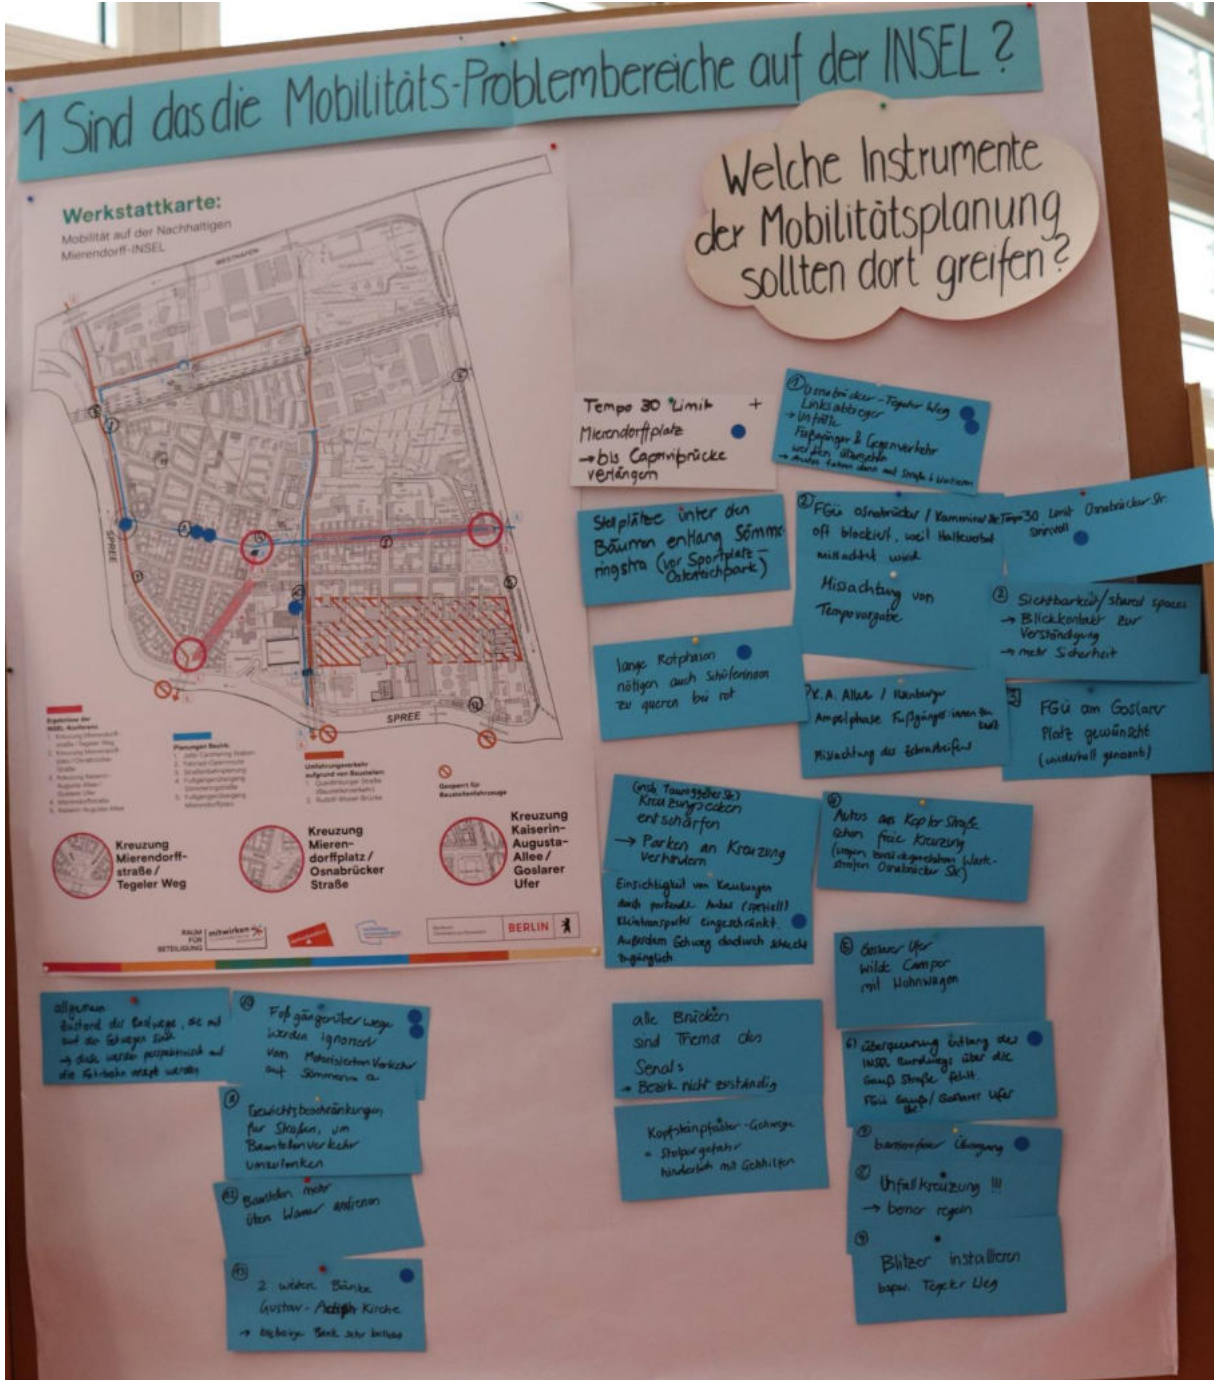 1 Sind das die Mobilitäts-Problembereiche auf der INSEL?
Welche Instrumente
der Mobilitätsplanung
sollten dort greifen?
Werkstattkarte:
Mobilität auf der Nachhaltigen
Mierendorff-INSEL
WESTHAFEN
SPREE
SPREE
Ergebnisse der
INSEL-Konferenz
Planungen Bezirk:
Umfahrungsverkehr
aufgrund von Baustellen:
Gesperrt für
Baustellenfahrzeuge
Kreuzung
Mierendorff-
straße /
Tegeler Weg
Kreuzung
Mieren-
dorffplatz /
Osnabrücker
Straße
Kreuzung
Kaiserin-
Augusta-
Allee /
Goslarer
Ufer
RAUM
FÜR
BETEILIGUNG
mitwirken
BERLIN
Tempo 30 Limit +
Mierendorffplatz
→ bis Caprivibrücke
verlängern
① Osnabrücker-Tegeler Weg
Linksabbieger
→ Unfälle
Fußgänger & Gegenverkehr
werden übersehen
Stellplätze unter den
Bäumen entlang Sömme-
ringstra (vor Sportplatz -
Österreichpark)
② FGÜ Osnabrücker /
oft blockiert, weil Halteverbot
missachtet wird
Missachtung von
Tempovorgabe
Tempo 30 Limit Osnabrücker Str.
sinnvoll
② Sichtbarkeit/shared spaces
→ Blickkontakt zur
Verständigung
→ mehr Sicherheit
lange Rotphasen
nötigen auch Schülerinnen
zu queren bei rot
K.A. Allee /
Ampelphase Fußgänger:innen zu
kurz
Missachtung des Zebrastreifens
③ FGÜ am Goslarer
Platz gewünscht
(wiederholt genannt)
Kreuzungsecken
entschärfen
→ Parken an Kreuzung
verhindern
Einsichtigkeit von Kreuzungen
durch parkende Autos (speziell)
Kleintransporter eingeschränkt.
Außerdem Gehweg dadurch schlecht
zugänglich
④ Autos aus Kepler Straße
sehen freie Kreuzung
⑤ Goslarer Ufer
wilde Camper
mit Wohnwagen
6) Überquerung entlang des
INSEL Rundwegs über die
Gauß Straße fehlt.
FGÜ Gauß / Goslarer Ufer
Str
alle Brücken
sind Thema des
Senats
→ Bezirk nicht zuständig
Kopfsteinpflaster-Gehwege
= Stolpergefahr
hinderlich mit Gehhilfen
barrierefreier Übergang
Unfallkreuzung !!!
→ besser regeln
Blitzer installieren
bspw. Tegeler Weg
allgemein:
Zustand der Radwege, die mit
auf den Gehwegen sind
→ diese werden perspektivisch auf
die Fahrbahn verlegt werden
⑩ Fußgängerüberwege
werden ignoriert
vom Motorisierten Verkehr
auf
Gewichtsbeschränkungen
für Straßen, um
Baustellenverkehr
umzulenken
Baustellen mehr
über Wasser andienen
⑬ 2 weitere Bänke
Gustav-Adolph Kirche
→ bisherige Bank sehr beliebt